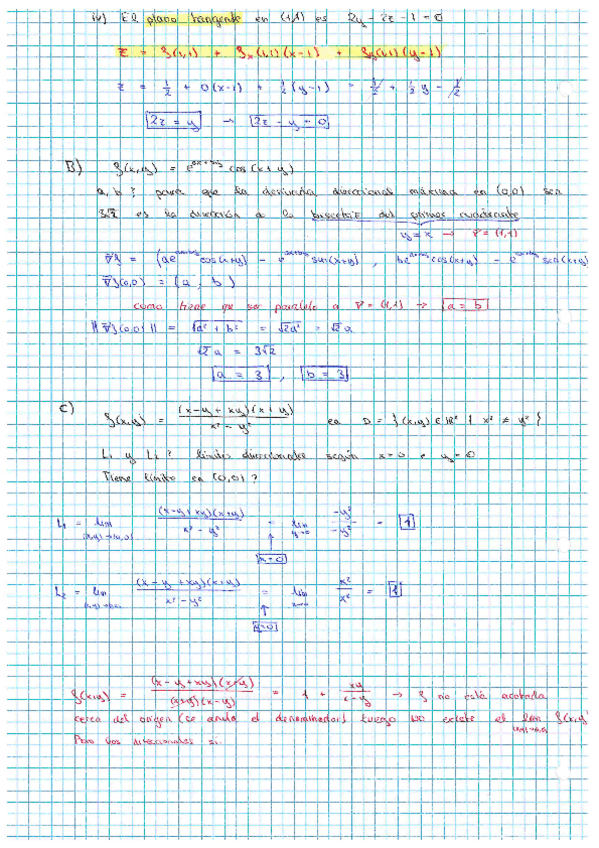 iv) El plano tangente en (1,1) es 2y - 2z - 1 = 0
z = f(1,1) + fx(1,1)(x-1) + fy(1,1)(y-1)
z = 1/2 + 0(x-1) + 1/2(y-1) = 1/2 + 1/2 y - 1/2
2z = y → 2z - y = 0
B) f(x,y) = e^(ax+by) cos(x+y)
a, b ? para que la derivada direccional máxima en (0,0) sea
3√2 es la dirección a la bisectriz del primer cuadrante
y = x → v = (1,1)
∇f = (ae^(ax+by) cos(x+y) - e^(ax+by) sen(x+y), be^(ax+by) cos(x+y) - e^(ax+by) sen(x+y)
∇f(0,0) = (a, b)
como tiene que ser paralelo a v = (1,1) → a = b
||∇f(0,0)|| = √a² + b² = √2a² = √2 a
√2 a = 3√2
a = 3, b = 3
C) f(x,y) = (x-y+xy)(x+y) / x² - y² en D = {(x,y) ∈ R² / x² ≠ y²}
L1 y L2 ? límites direccionales según x=0 e y=0
Tiene límite en (0,0)?
L1 = lim (x,y)→(0,0) (x-y+xy)(x+y) / x² - y² = lim y→0 -y² / -y² = 1
x=0
L2 = lim (x,y)→(0,0) (x-y+xy)(x+y) / x² - y² = lim x→0 x² / x² = 1
y=0
f(x,y) = (x-y+xy)(x+y) / (x+y)(x-y) = 1 + xy / x-y → f no está acotada
cerca del origen (se anula el denominador) luego no existe el lim f(x,y)
(x,y)→(0,0)
Pero los direccionales sí.